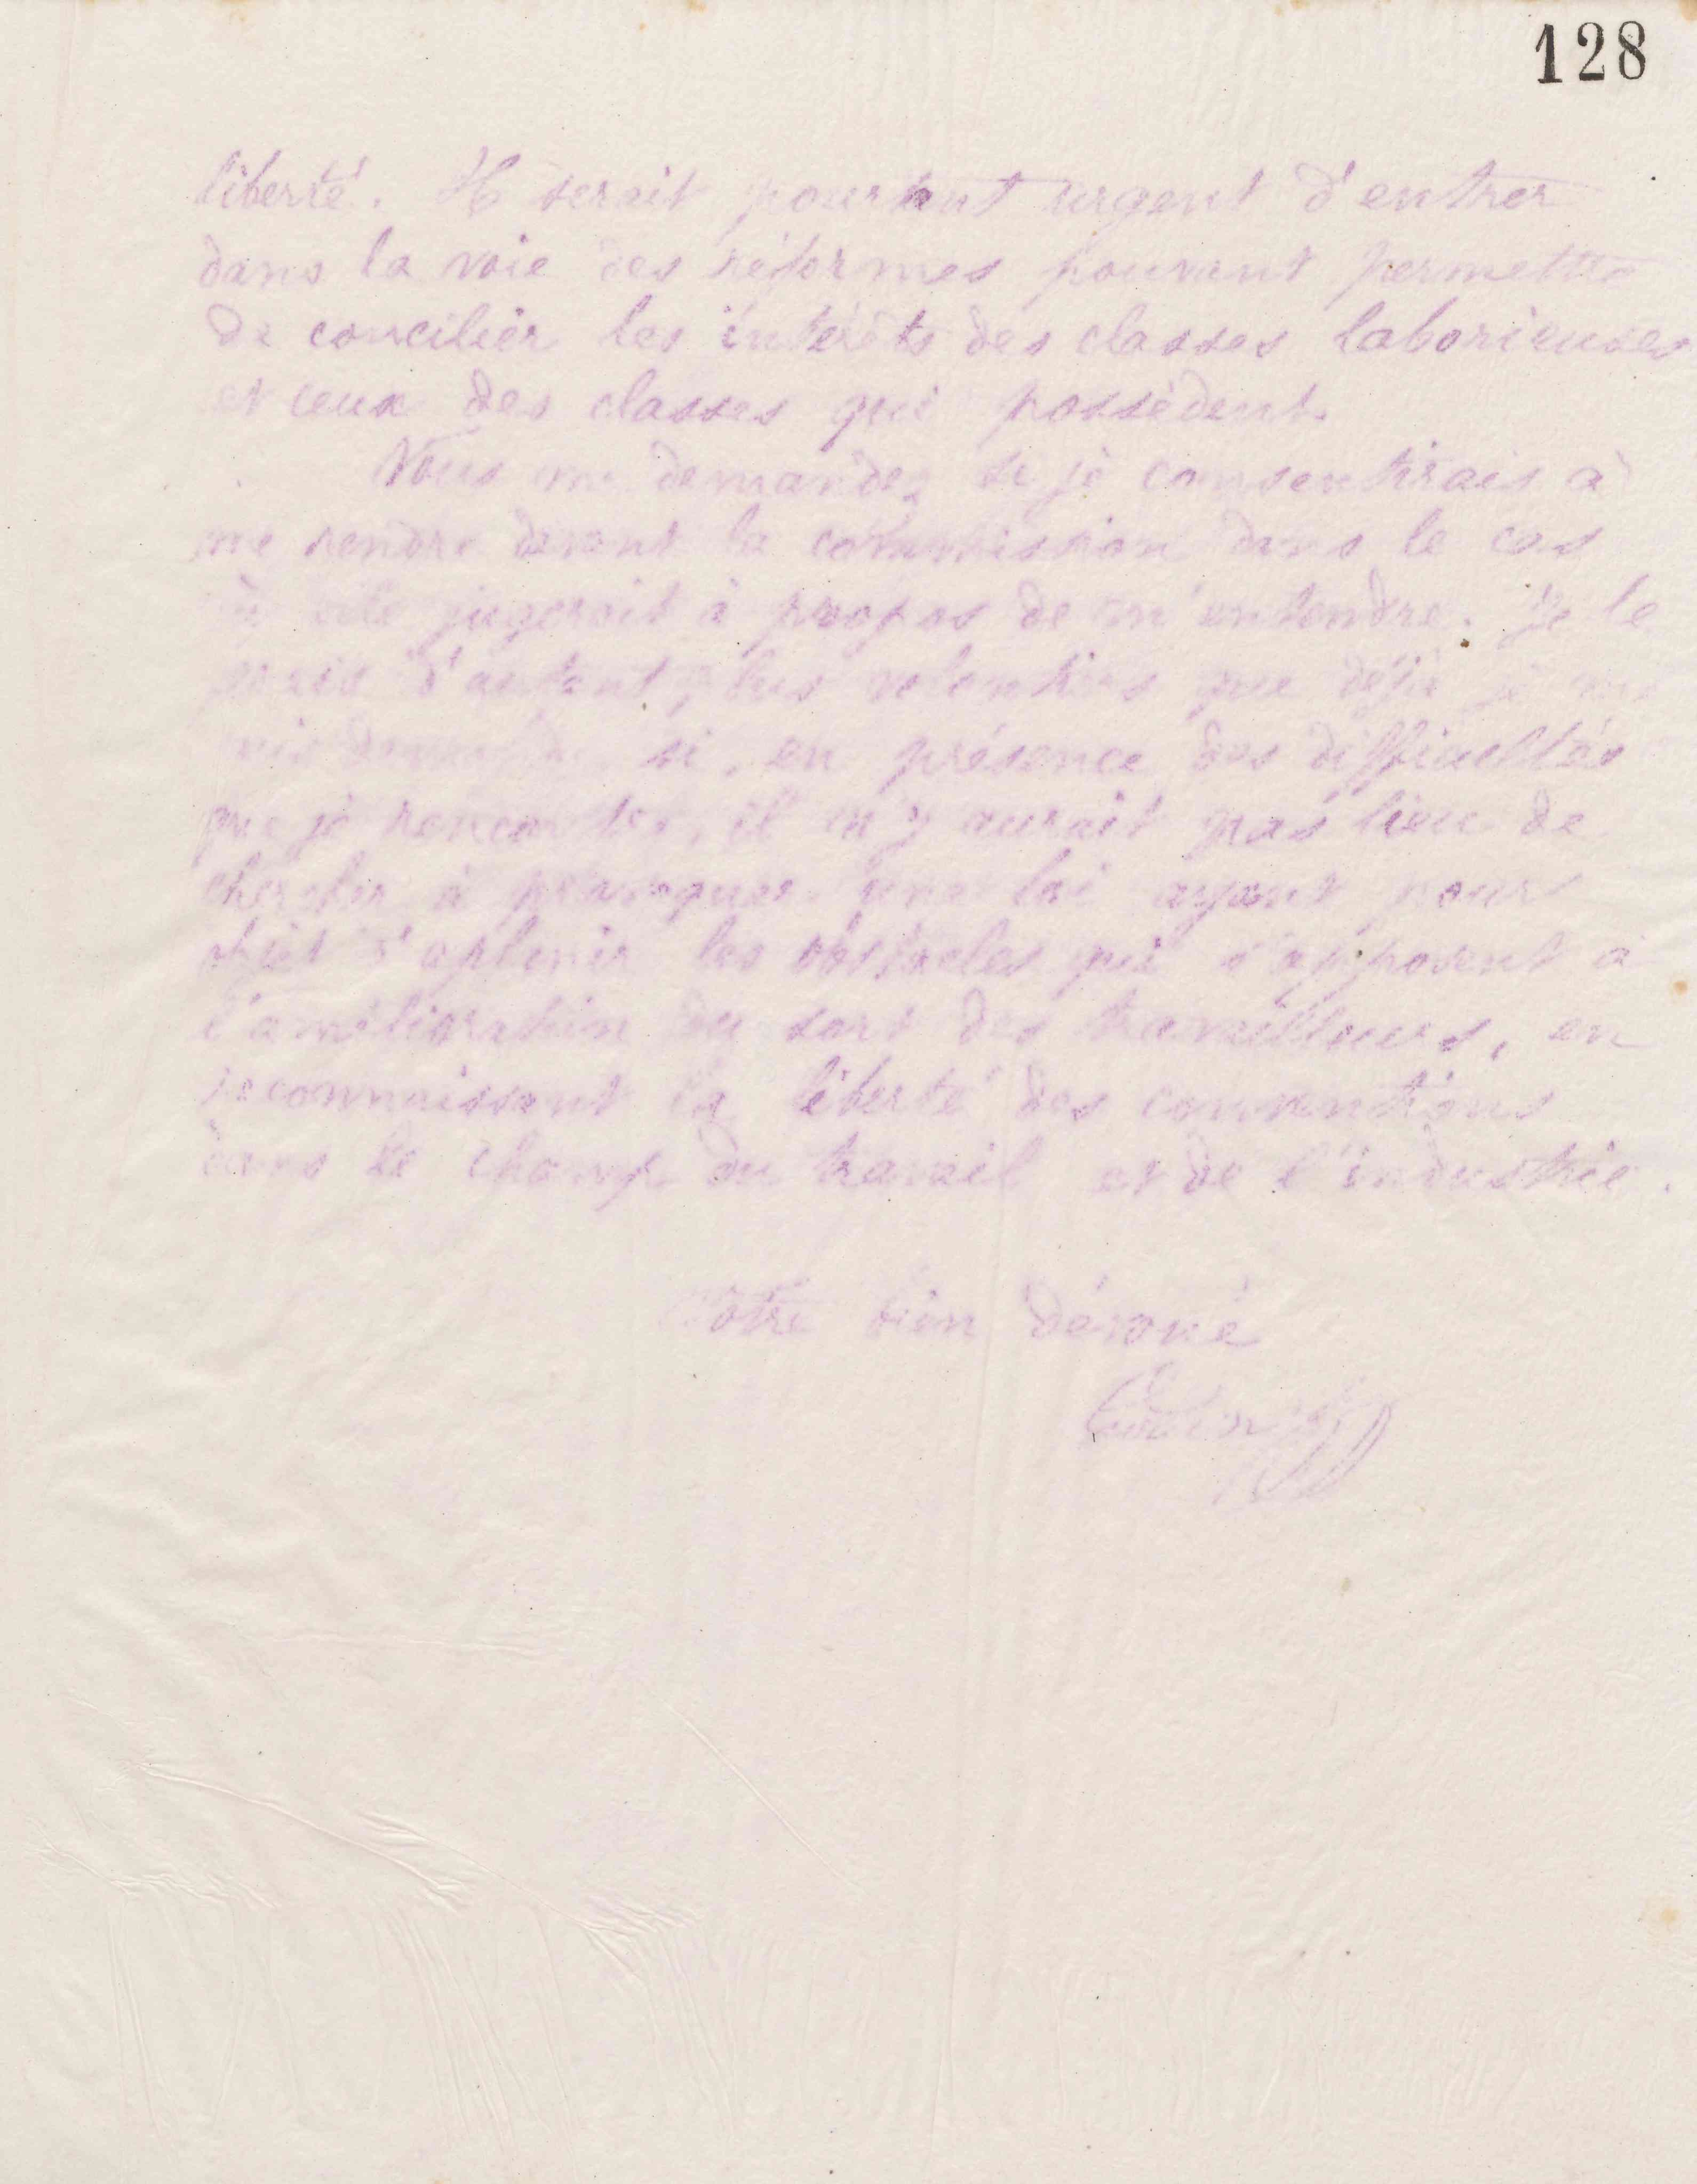 128
liberté. Il serait pourtant urgent d'entrer
dans la voie des réformes pouvant permettre
de concilier les intérêts des classes laborieuses
et ceux des classes qui possèdent.
Vous me demandez si je consentirais à
me rendre devant la commission dans le cas
où elle jugerait à propos de m'entendre. Je le
ferais d'autant plus volontiers que déjà je me
suis demandé si, en présence des difficultés
que je rencontre, il n'y aurait pas lieu de
chercher à provoquer une loi ayant pour
objet d'aplanir les obstacles qui s'opposent à
l'amélioration du sort des travailleurs, en
reconnaissant la liberté des conventions
dans le champ du travail et de l'industrie.
Votre bien dévoué
Godin